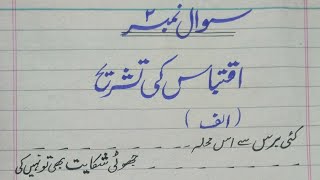 سوال نمبر ۲
اقتباس کی تشریح
(الف)
کئی برس سے اس محلہ ـــــــ جھوٹی شکایت بھی تو نہیں کی